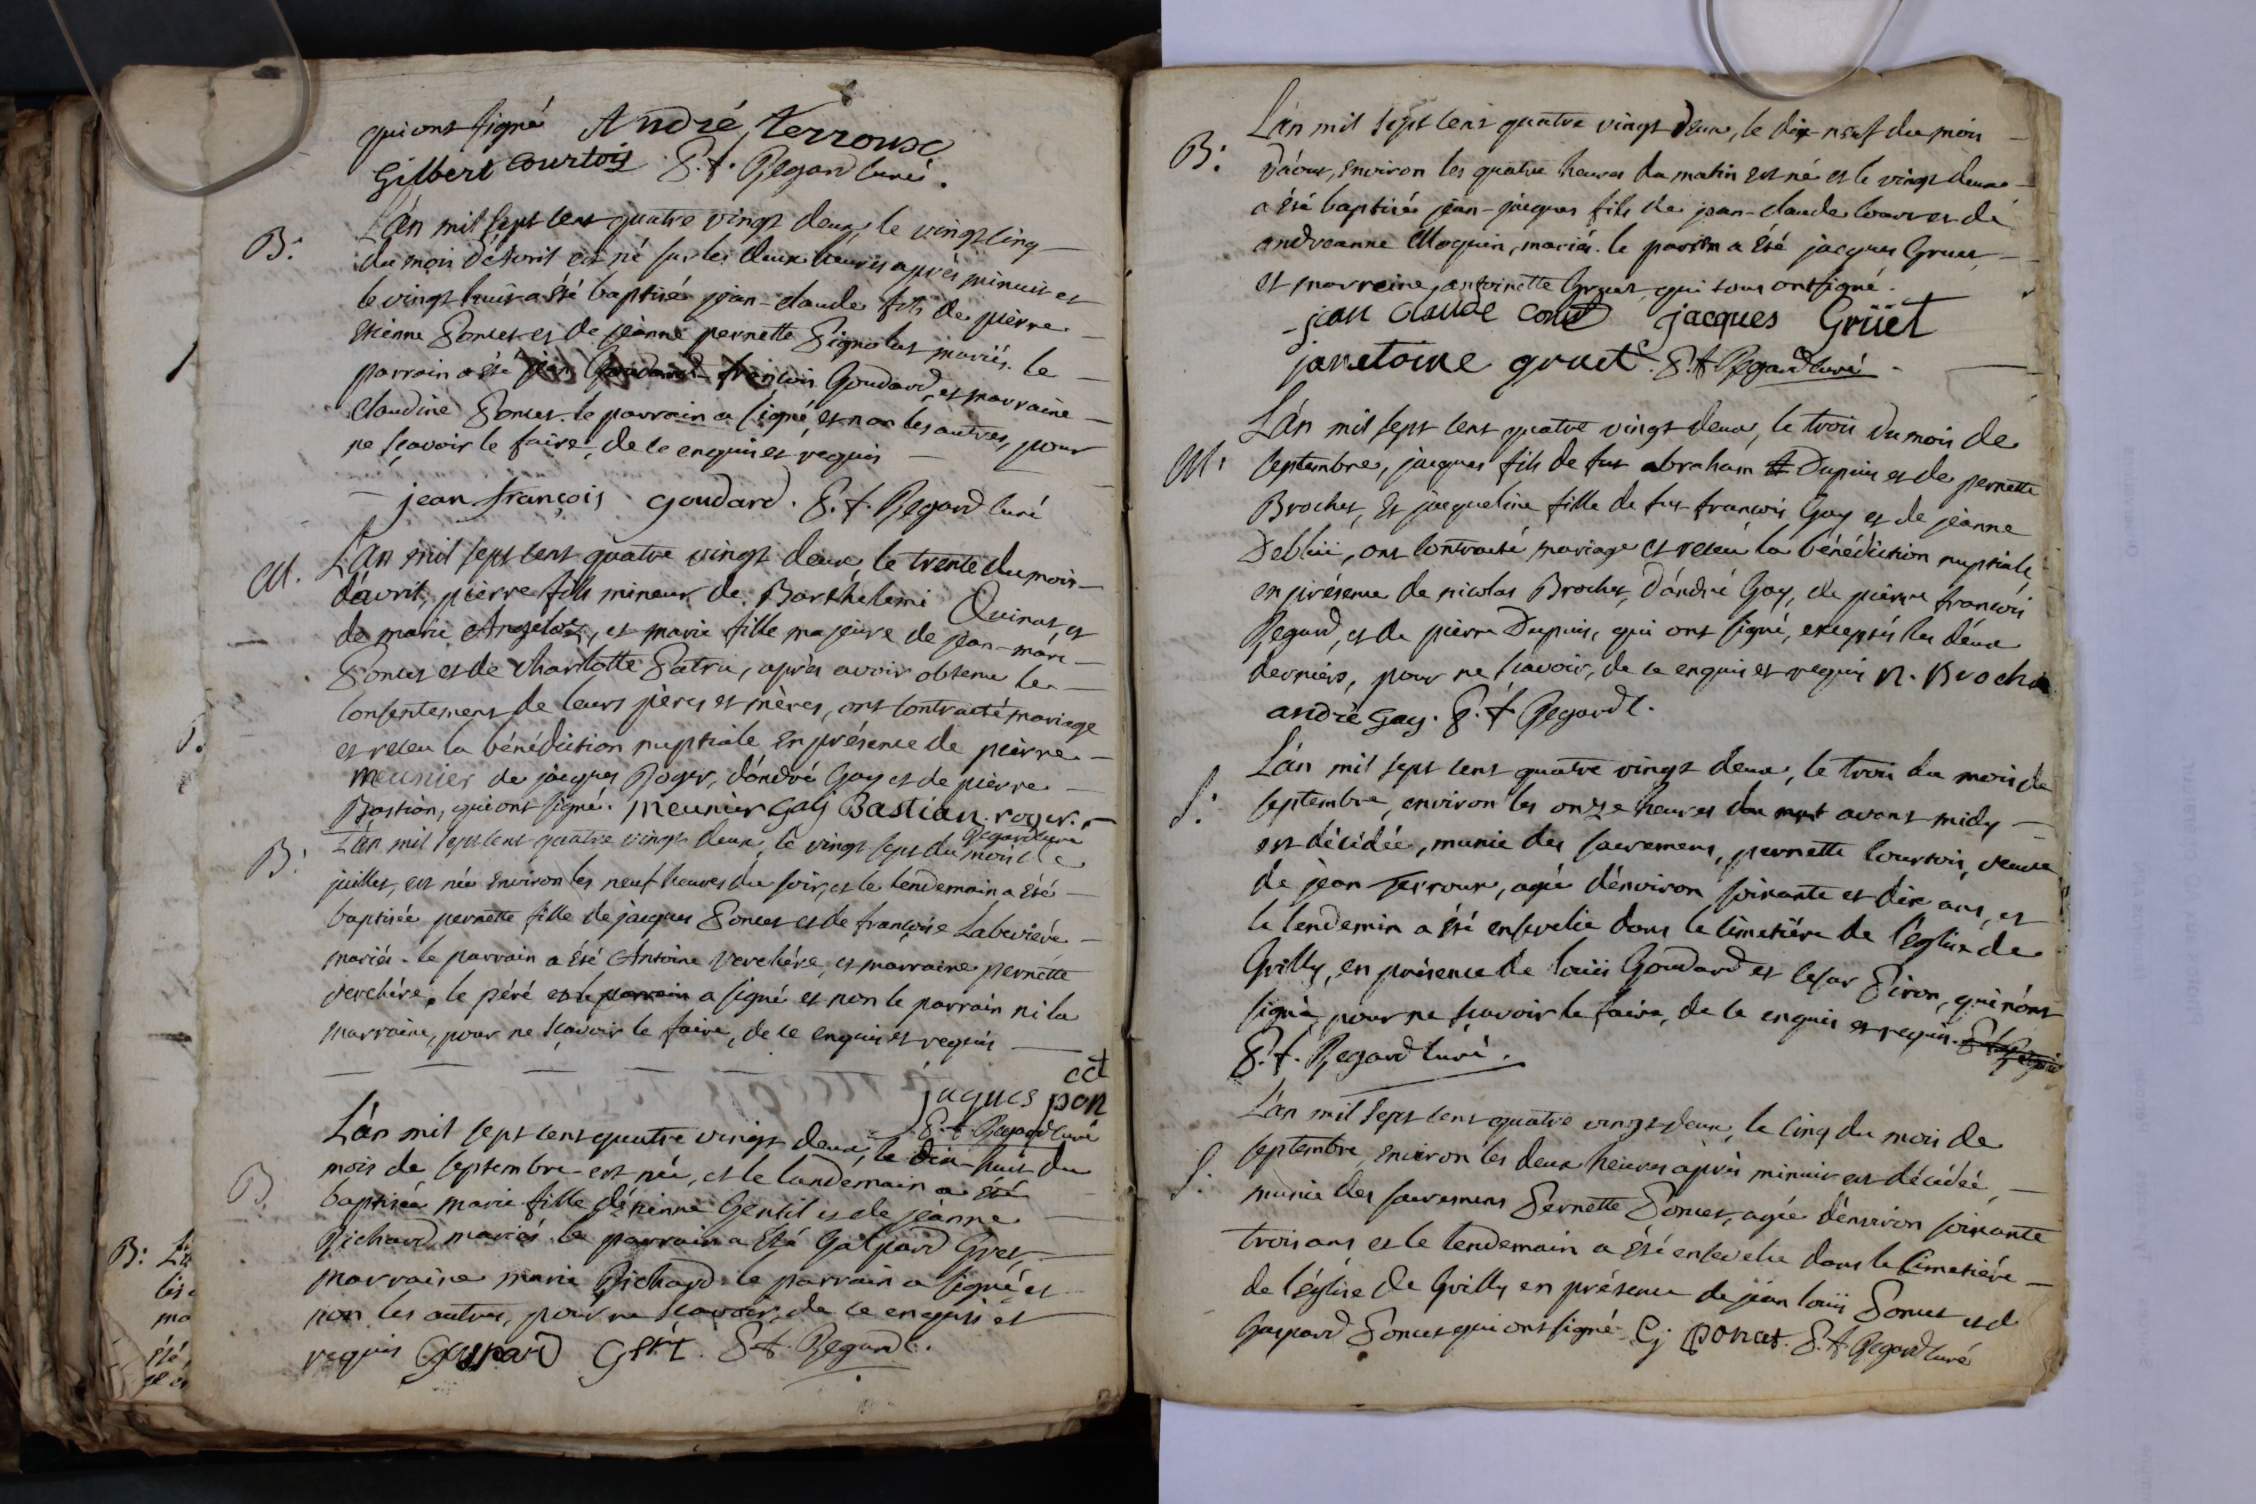 qui ont signé André Terroux
Gilbert courtois. P. f. Regard Curé.
B: L'an mil sept cent quatre vingt deux, le vingt cinq
du mois d'Avril est né sur les deux heures après minuit et
le vingt huit a été baptisé jean-claude fils de pierre
etienne Poncet et de jeanne pernette Pignolet mariés. le
parrain a été françois Goudard, et marraine
Claudine Poncet. le parrain a signé, et non les autres, pour
ne sçavoir le faire, de ce enquis et requis
jean françois goudard. P. f. Regard Curé
M. L'an mil sept cent quatre vingt deux, le trente du mois
d'avril, pierre fils mineur de Barthelemi Quinat, et
de marie Angelot, et marie fille majeure de jean-marc
Poncet et de charlotte Patru, après avoir obtenu le
consentement de leurs pères et mères, ont contracté mariage
et receu la bénédiction nuptiale en présence de pierre
meunier de jacques Roger, d'andré Gay et de pierre
Bastian, qui ont signé. meunier Gay Bastian. roger.
Regard Curé
B: L'an mil sept cent quatre vingt deux, le vingt sept du mois de
juillet, est née environ les neuf heures du soir, et le lendemain a été
baptisée pernette fille de jacques Poncet et de françoise Laberière
mariés. le parrain a été Antoine Verchère, et marraine pernette
verchère. le péré et le parrain a signé et non le parrain ni la
marraine, pour ne sçavoir le faire, de ce enquis et requis
jaques pon
cet
P. f. Regard Curé
B. L'an mil sept cent quatre vingt deux, le dix-huit du
mois de septembre est née, et le landemain a été
baptisée marie fille d'étienne Gentil et de jeanne
Richard mariés. le parrain a été Gaspard Gret,
marraine marie Richard. le parrain a signé et
non les autres, pour ne scavoir, de ce enquis et
requis Gaspard Gret. P. f. Regard C.
B: L'an mil sept cent quatre vingt deux, le dix neuf du mois
d'aout, environ les quatre heures du matin est né et le vingt deux
a été baptisé jean-jacques fils de jean-claude et de
andreanne Moquin, mariés. le parrin a été jacques Gruet,
et marreine antoinette Gruet, qui tous ont signé.
jean claude jacques Grüet
gruet. P. f. Regard Curé.
M. L'an mil sept cent quatre vingt deux, le trois du mois de
septembre, jacques fils de fut abraham Dupuis et de pernette
Brochet, et jacqueline fille de fut françois Gay et de jeanne
, ont contracté mariage et receu la bénédiction nuptiale,
en présence de nicolas Brochet, d'andré Gay, de pierre françois
Regard, et de pierre Dupuis, qui ont signé, exceptés les deux
derniers, pour ne scavoir, de ce enquis et requis N. Broche
andré Gay. P. f. Regard C.
S: L'an mil sept cent quatre vingt deux, le trois du mois de
septembre, environ les onze heures avant midy
est décédée, munie des sacremens, pernette Courtois, veuve
de jean Terroux, agée d'environ soixante et dix ans, et
le lendemin a été ensevelie dans le cimetière de l'église de
Grilly, en présence de louis Goudard et cesar Piron, qui n'ont
signé, pour ne sçavoir le faire, de ce enquis et requis.
P. f. Regard Curé.
S. L'an mil sept cent quatre vingt deux, le cinq du mois de
septembre, environ les deux heures après minuit est décédée,
munie des sacremens Pernette Poncet, agée d'environ soixante
trois ans et le lendemain a été ensevelie dans le Cimetière
de l'église de Grilly en présence de jean louis Poncet et de
Gaspard Poncet qui ont signé. G poncet. P. f. Regard Curé